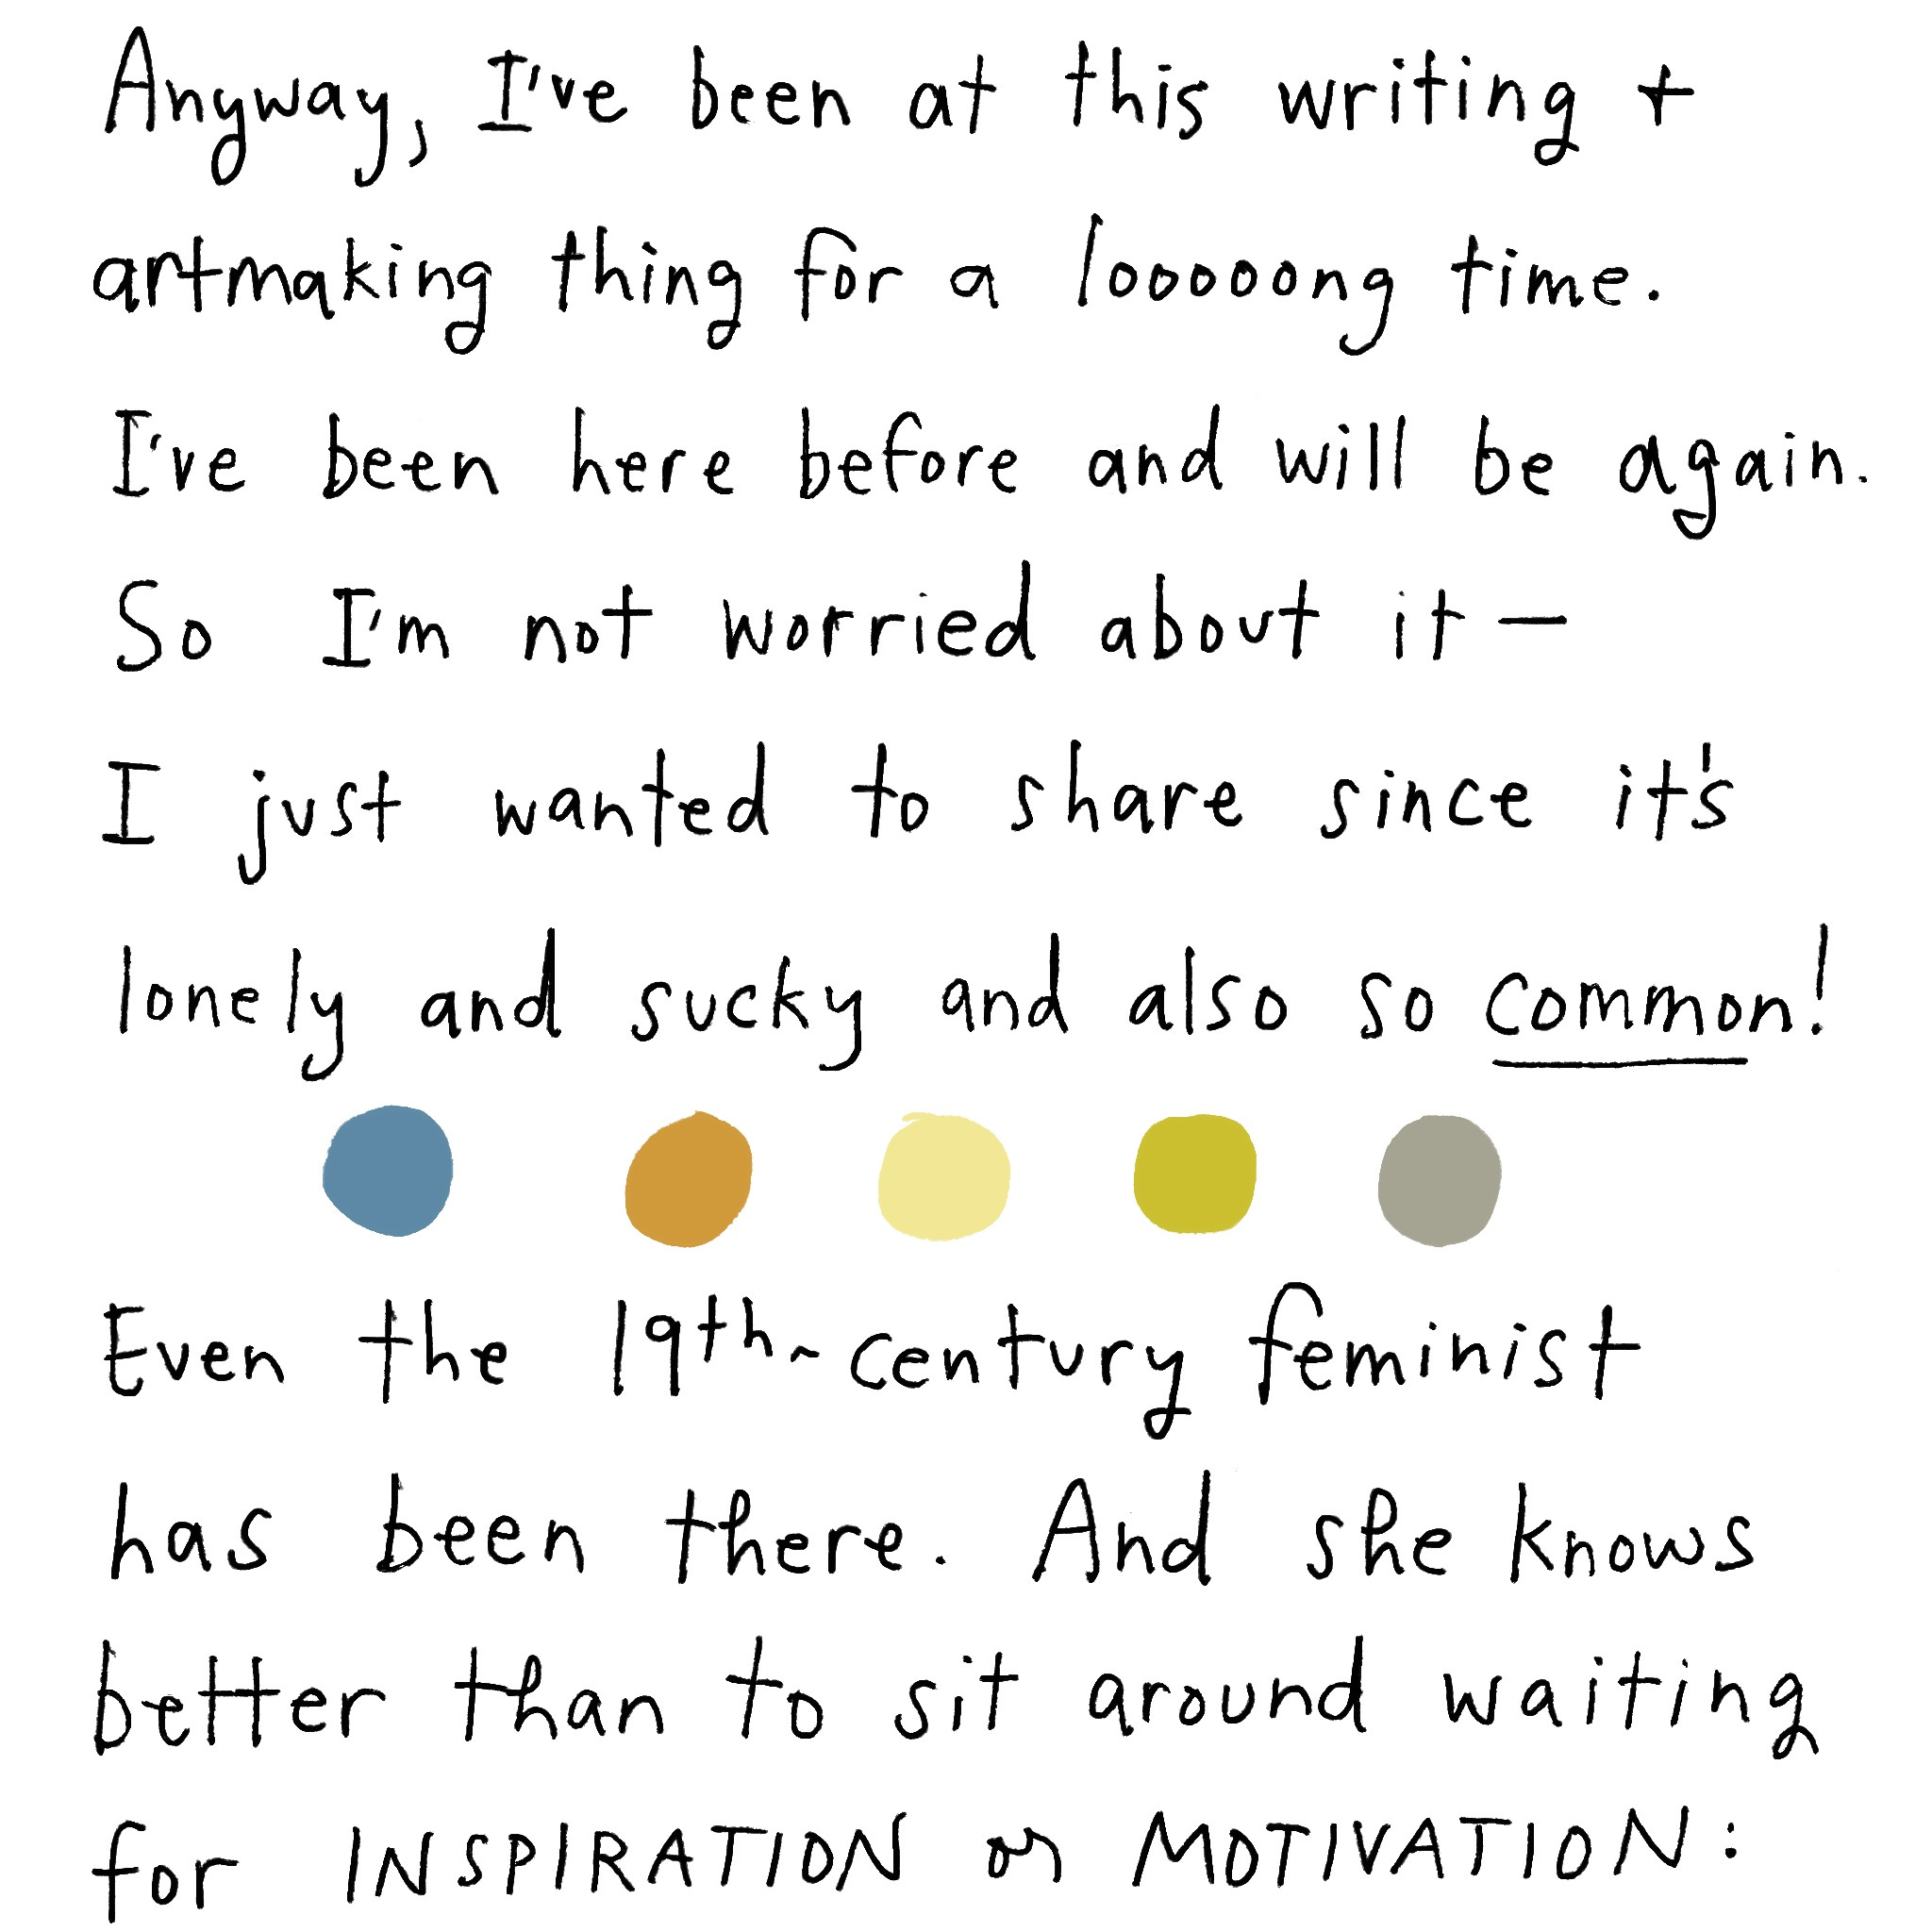 Anyway, I've been at this writing +
artmaking thing for a looooong time.
I've been here before and will be again.
So I'm not worried about it—
I just wanted to share since it's
lonely and sucky and also so common!
Even the 19th-century feminist
has been there. And she knows
better than to sit around waiting
for INSPIRATION or MOTIVATION: